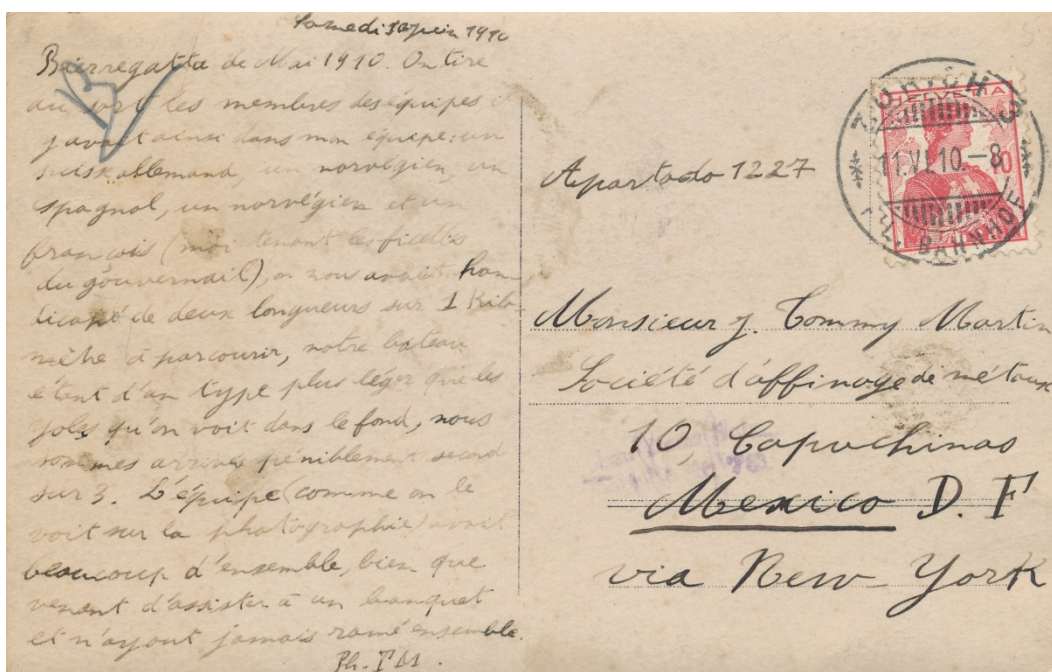 Samedi 10 juin 1910
Bierregatta de Mai 1910. On tire
au sort les membres des équipes il
y avait ainsi dans mon équipe: un
suisse allemand, un norvégien, un
espagnol, un norvégien et un
français (moi tenant les ficelles
du gouvernail), on nous avait han
dicapé de deux longueurs sur 1 Kilo
mètre à parcourir, notre bateau
étant d'un type plus léger que les
yoles qu'on voit dans le fond, nous
sommes arrivés péniblement second
sur 3. L'équipe (comme on le
voit sur la photographie) avait
beaucoup d'ensemble, bien que
venant d'assister à un banquet
et n'ayant jamais ramé ensemble.
Ph. 
HELVETIA
10
ZÜRICH 9
11.VI.10.-8
FIL. BAHNHOF
Apartado 1227
Monsieur J. Tommy Martin
Société d'affinage de métaux
10, Capuchinas
Mexico D. F
via New-York